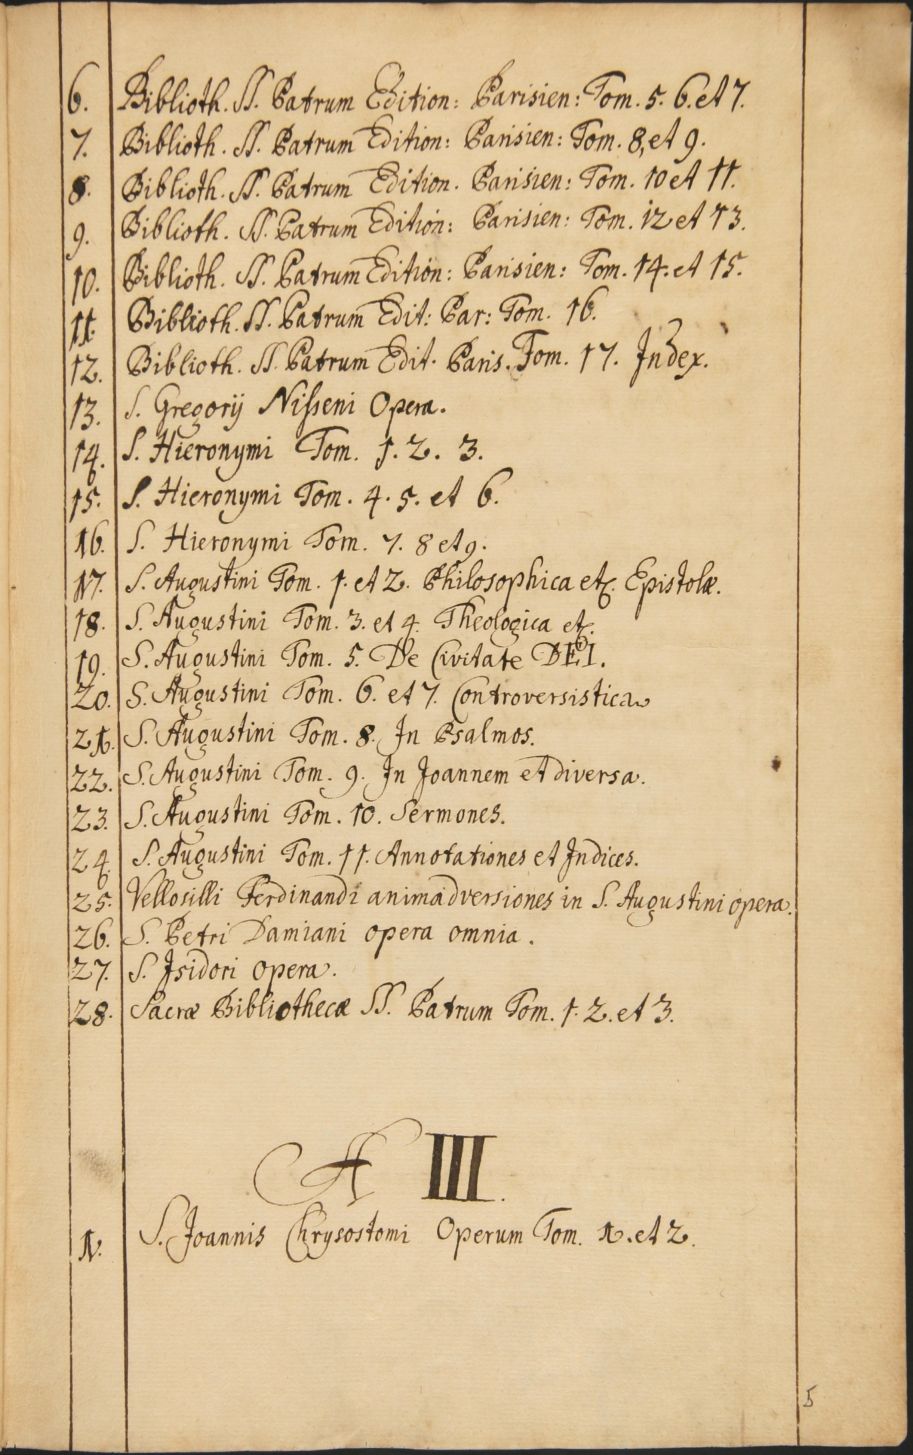 6. Biblioth. SS. Patrum Edition: Parisien: Tom. 5. 6. et 7.
7. Biblioth. SS. Patrum Edition: Parisien: Tom. 8, et 9.
8. Biblioth. SS. Patrum Edition. Parisien: Tom. 10 et 11.
9. Biblioth. SS. Patrum Edition: Parisien: Tom. 12 et 13.
10. Biblioth. SS. Patrum Edition: Parisien: Tom. 14. et 15.
11. Biblioth. SS. Patrum Edit: Par: Tom. 16.
12. Biblioth. SS. Patrum Edit. Paris. Tom. 17. Index.
13. S. Gregorij Nisseni Opera.
14. S. Hieronymi Tom. 1. 2. 3.
15. S. Hieronymi Tom. 4. 5. et 6.
16. S. Hieronymi Tom. 7. 8 et 9.
17. S. Augustini Tom. 1. et 2. Philosophica etc. Epistolæ.
18. S. Augustini Tom. 3. et 4. Theologica etc.
19. S. Augustini Tom. 5. De Civitate DEI.
20. S. Augustini Tom. 6. et 7. Controversistica
21. S. Augustini Tom. 8. In Psalmos.
22. S. Augustini Tom. 9. In Joannem et diversa.
23. S. Augustini Tom. 10. Sermones.
24. S. Augustini Tom. 11. Annotationes et Indices.
25. Vellosilli Ferdinandi animadversiones in S. Augustini opera.
26. S. Petri Damiani opera omnia.
27. S. Isidori opera.
28. Sacræ Bibliothecæ SS. Patrum Tom. 1. 2. et 3.
A III.
1. S. Joannis Chrysostomi Operum Tom. 1. et 2.
5